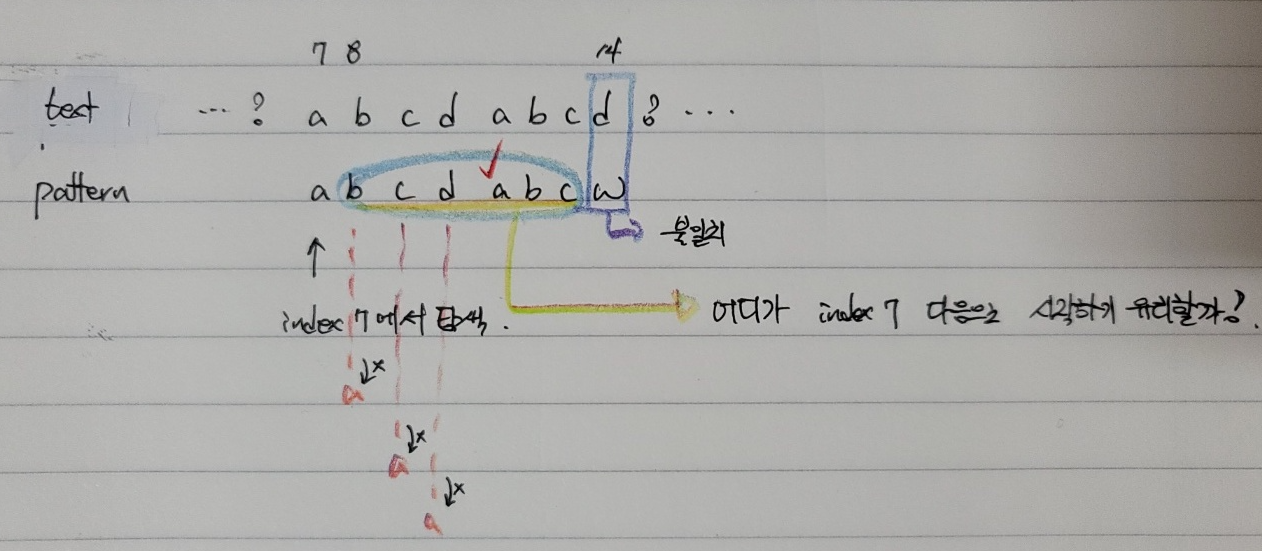 7 8 14
text ... ? a b c d a b c d ? ...
pattern a b c d a b c w
불일치
index 7에서 탐색. 어디가 index 7 다음으로 시작하기 유리할까?.
x
a
x
a
x
a